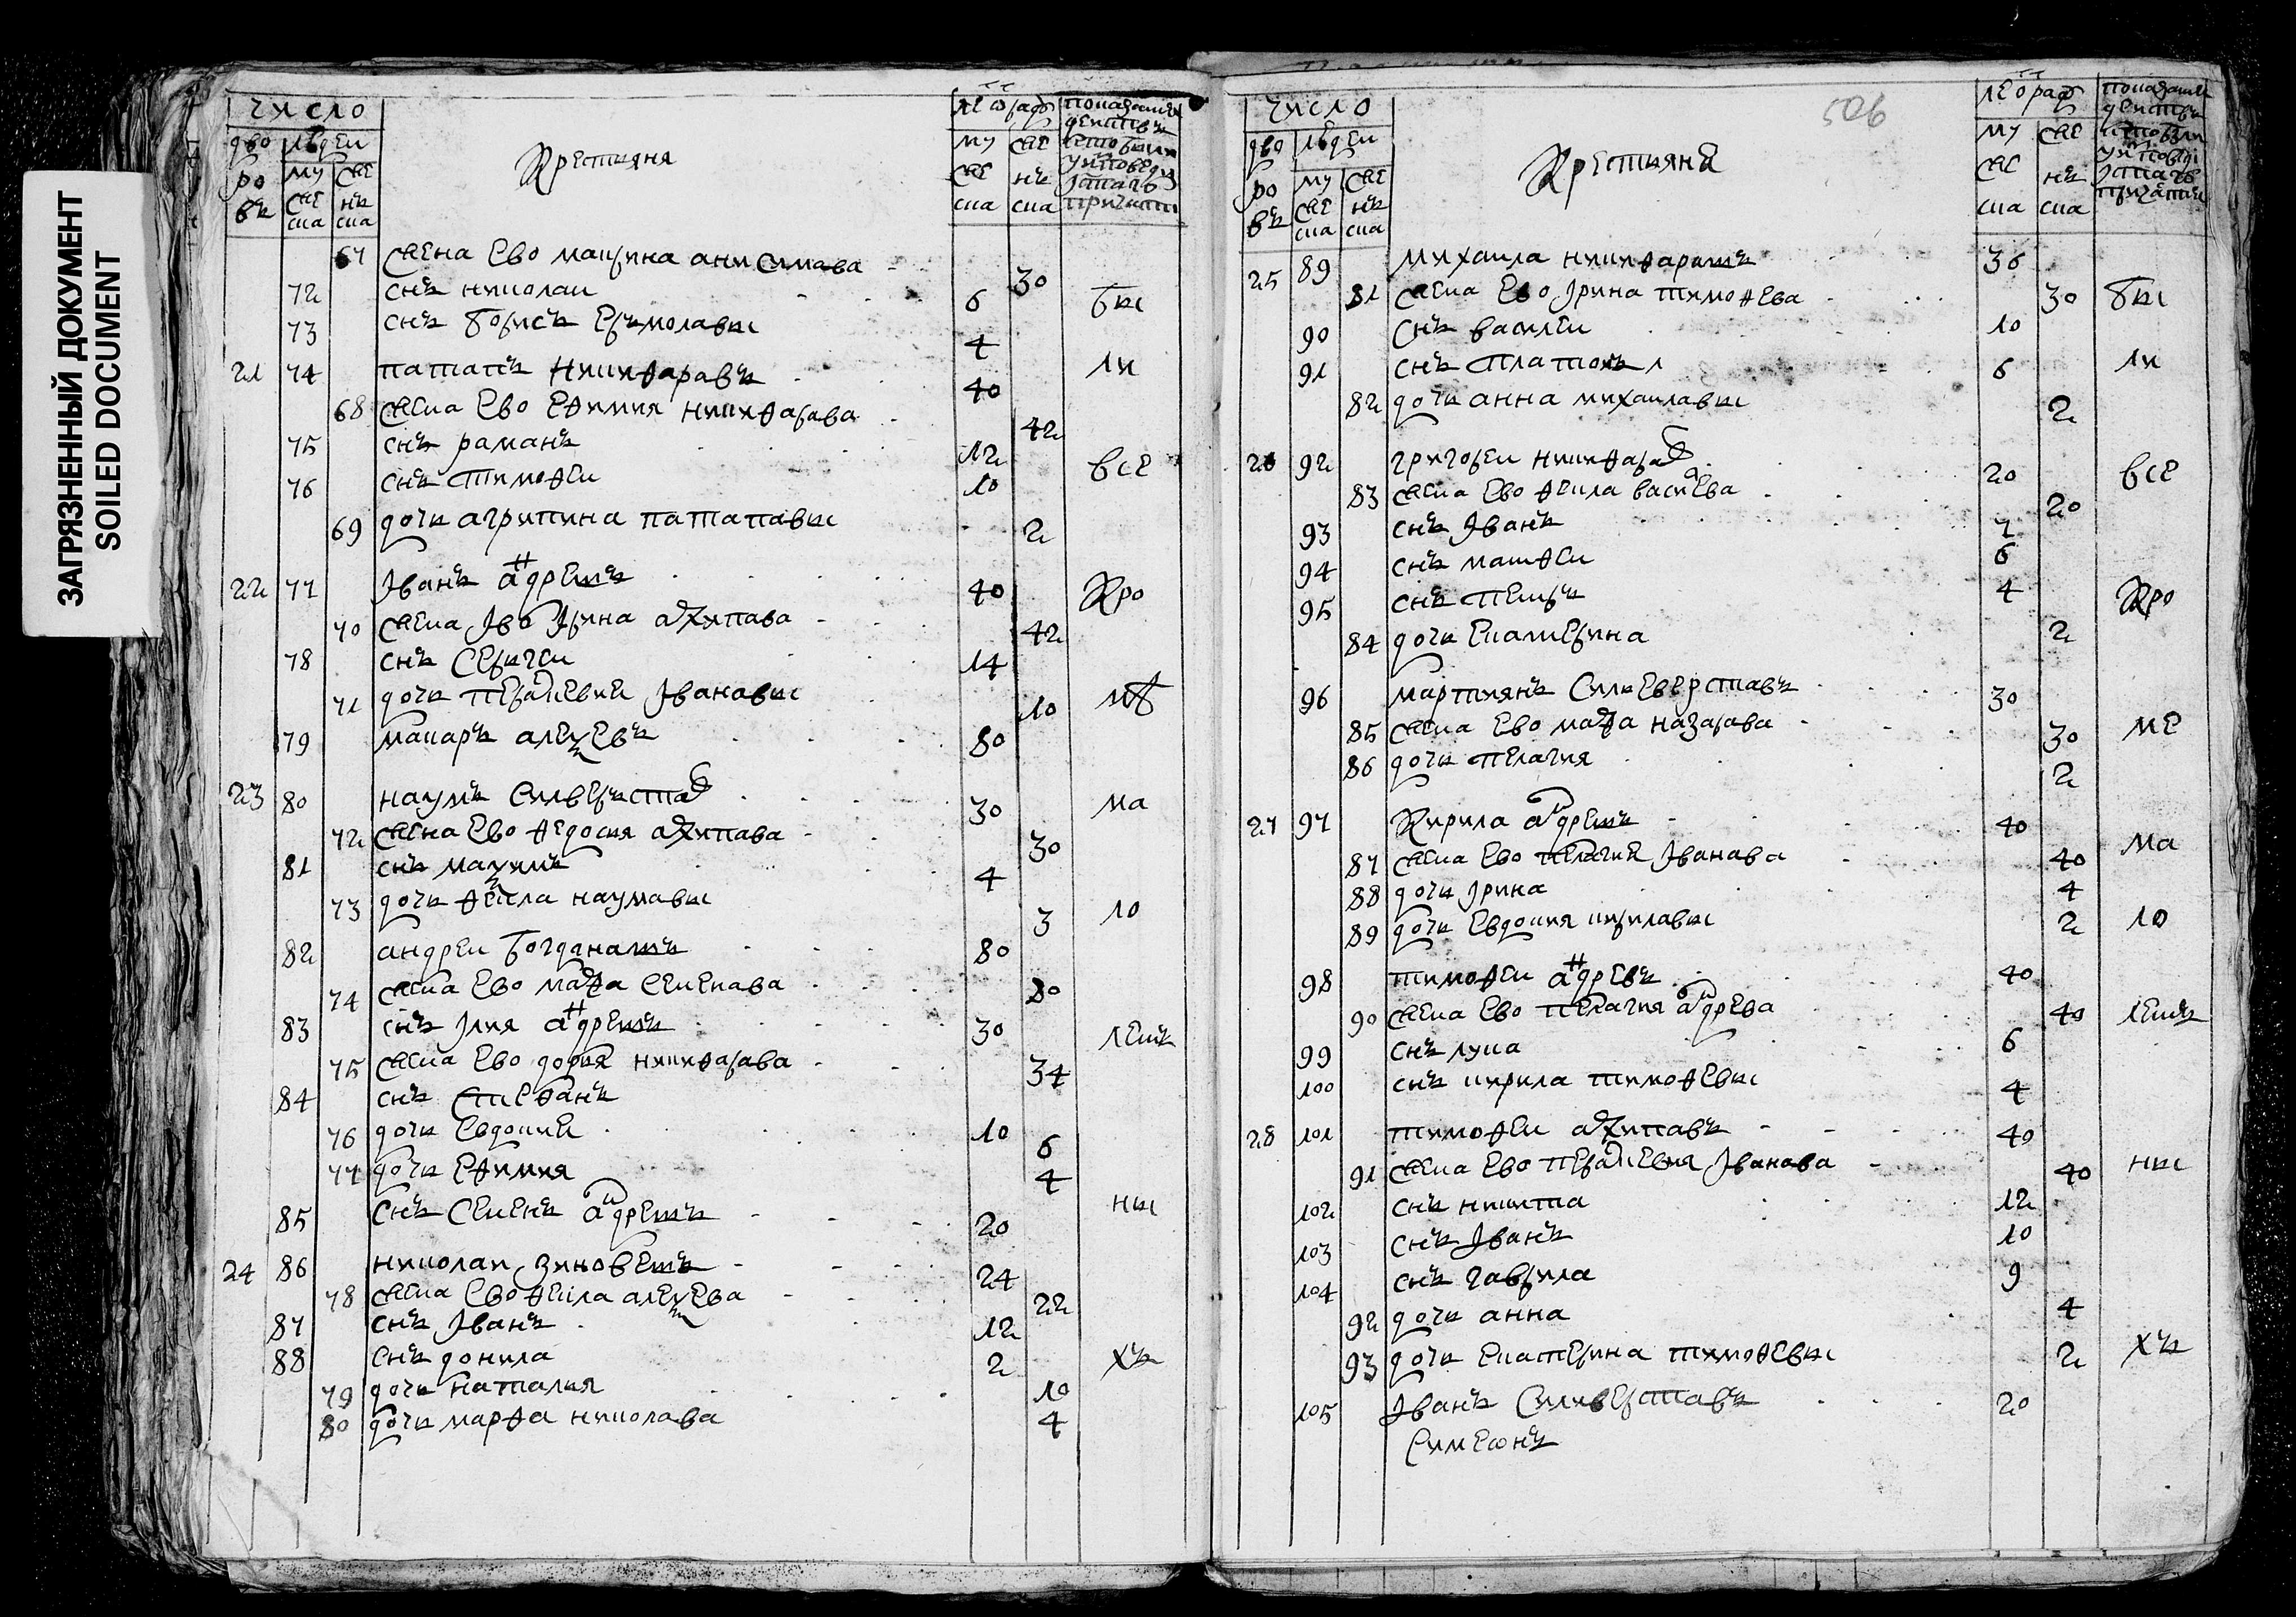 ЗАГРЯЗНЕННЫЙ ДОКУМЕНТ
SOILED DOCUMENT
число
дворовъ людеи муска женъска
Крестияня
67 жена ево макрина анисимава 30
72 снъ николаи 6 бы
73 снъ борисъ ермолавы 4
21 74 патапъ никифаравъ 40 ли
68 жена ево ефимия никифарава 42
75 снъ раманъ 12 все
76 снъ тимофеи 10
69 дочь агрипина патапавы 2
22 77 Iванъ андреевъ 40 Кро
70 жена Iво Iрина архипава 42
78 снъ сергеи 14
71 дочь Iванавы 10 мѣ
79 макаръ алексеевъ 80
23 80 наумъ силверстов 30 ма
72 жена ево федосия архипава 30
81 снъ максимъ 4
73 дочь фекла наумавы 3 ло
82 андреи богданавъ 80
74 жена ево марфа семенава 80
83 снъ Iлия андреевъ 30 летнъ
75 жена ево дария никифарава 34
84 снъ стефанъ 10
76 дочь евдокия 6
77 дочь ефимия 4
85 снъ семенъ андреевъ 20 ны
24 86 николаи зиновевъ 24
78 жена ево фекла алексеева 22
87 снъ Iванъ 12
88 снъ донила 2 хъ
79 дочь наталия 10
80 дочь марфа николава 4
506
число
дворовъ людеи муска женъска
Крестияне
25 89 михаила никифаравъ 36
81 жена ево Iрина тимофева 30 бы
90 снъ василеи 10
91 снъ платонъ 6 ли
82 дочь анна михаилавы 2
26 92 григореи никифаров 20 все
83 жена ево фекла васиева 20
93 снъ Iванъ 7
94 снъ матфеи 6
95 снъ петръ 4 Кро
84 дочь екатерина 2
96 мартиянъ силвеверставъ 30
85 жена ево марфа назарава 30 ме
86 дочь пелагия 2
27 97 Кирила андреевъ 40
87 жена ево пелагия Iванава 40 ма
88 дочь Iрина 4
89 дочь евдокия кирилавы 2 ло
98 тимофеи андревъ 40
90 жена ево пелагия андрева 40 летнъ
99 снъ лука 6
100 снъ кирила тимофевы 4
28 101 тимофеи архипавъ 40
91 жена ево Iванава 40 ны
102 снъ никита 12
103 снъ Iванъ 10
104 снъ гаврила 9
92 дочь анна 4
93 дочь екатерина тимофевы 2 хъ
105 Iванъ силиверставъ 20
симеонъ